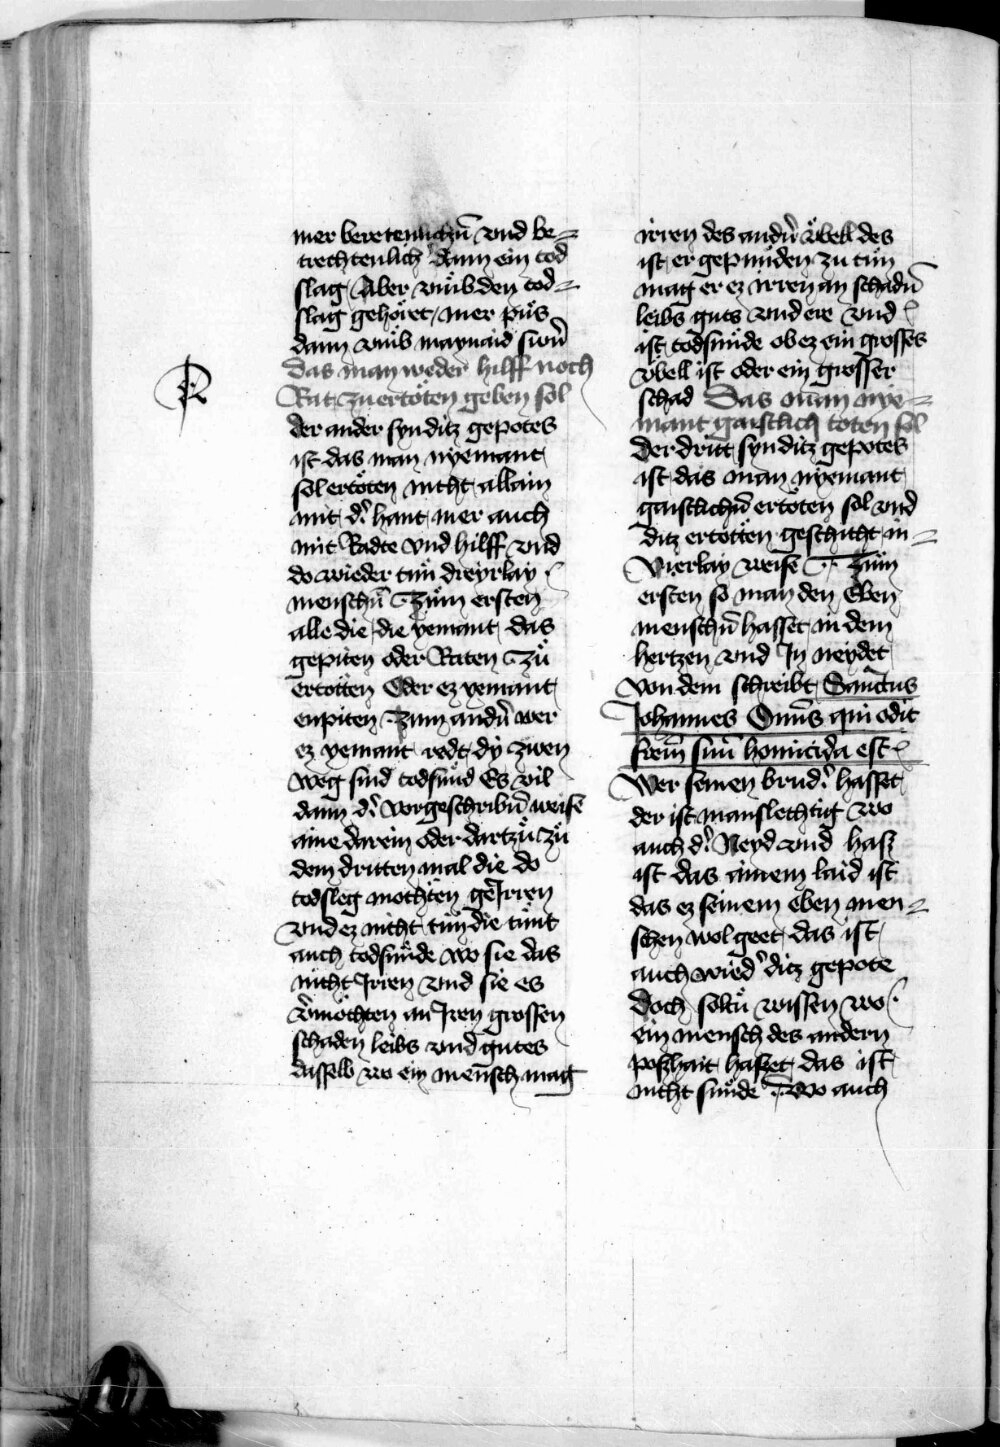 mer beretenlichn̄ vnd be=
trechtenlich dann ein tod
slag Aber vmb den tod=
slag gehöret mer pus
dann vmb maynaid swn̄
das man weder hilff noch
R
Rat zu ertöten geben sol
der ander syn ditz gepotes
ist das man nyemant
sol ertöten nicht allain
mit d' hant mer auch
mit Radte vnd hilff vnd
do wieder tun dreyrlay
menschn̄ Zum ersten
alle die die yemant das
gepiten oder Raten zu
ertötten Oder ez yemant
enpiten Zum andn̄ wer
ez yemant redt dy zwen
weg sind todsund Es vil
dann d' vorgeschribn̄ weise
aine darein oder dartzu zu
dem dritten mal die do
todsleg mochten geIrren
vnd ez nicht tun die tunt
auch todsunde wo sie das
nicht Irren vnd sie es
v'möchten an Iren grossen
schaden leibs vnd gutes
dasselb wo ein mensch mag
irren des andn̄ vbell des
ist er gepunden zu tun
mag er ez irren an schadn̄
leibs guts vnd ere vnd
ist todsunde ob ez ein grosses
vbell ist oder ein grosser
schad Das man nye=
mant gaistlich toten sol
Der dritt syn ditz gepotes
ist das man nyemant
gaistlichn̄ ertöten sol vnd
ditz ertötten geschicht in=
vierlay weise Zum
ersten so man den Eben
menschn̄ hasset in dem
hertzen vnd In neydet
von dem schreibt Sanctus
Johannes Omīs qui odit
frem̄ suū homicida est
Wer seinen brud' hasset
der ist manslechtig wo
auch d' Neyd vnd hasz
ist das einem laid ist
das ez seinem eben men=
schen wol geet das ist
auch wied' ditz gepote
Doch soltu wissen wo
ein mensch des andern
poszhait haszet das ist
nicht sunde Wo auch